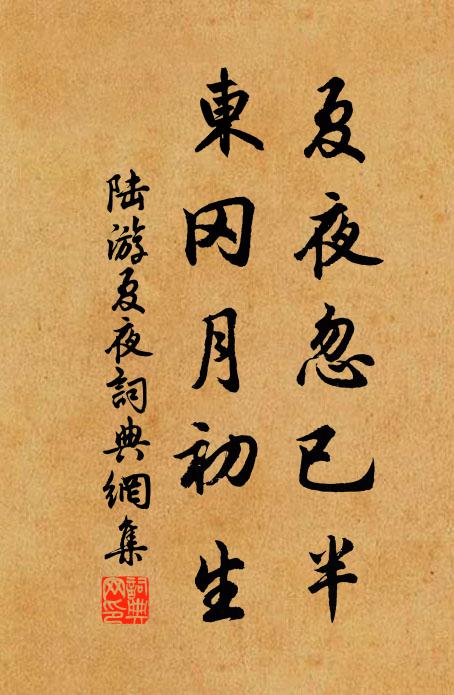 夏夜忽已半
東冈月初生
陆游夏夜詞典網集
詞典
网印